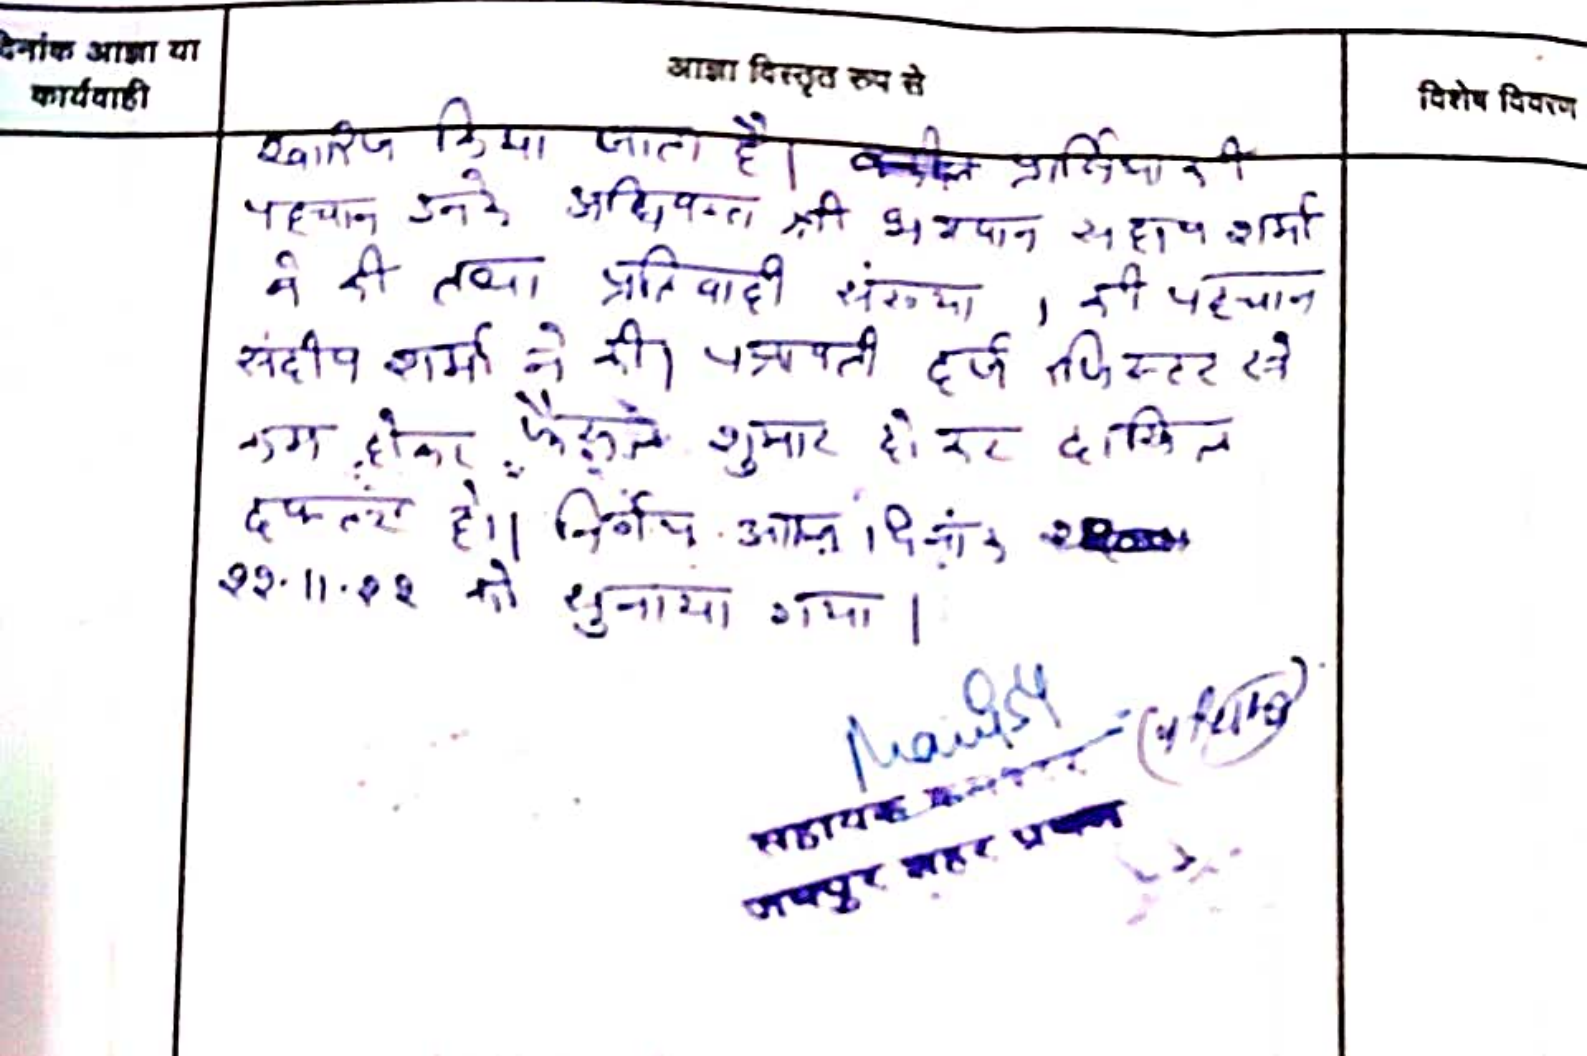 दिनांक आज्ञा या
कार्यवाही
आज्ञा विस्तृत रुप से
विशेष विवरण
खारिज किया जाता है। प्रार्थिया की
पहचान उनके अधिवक्ता श्री भगवान सहाय शर्मा
ने की तथा प्रतिवादी संख्या 1 की पहचान
संदीप शर्मा ने की। पत्रावली दर्ज रजिस्टर से
कम होकर फैसले शुमार होकर दाखिल
दफ्तर हो। निर्णय आज दिनांक
22.11.22 को सुनाया गया।
सहायक कलक्टर
जयपुर शहर प्रथम